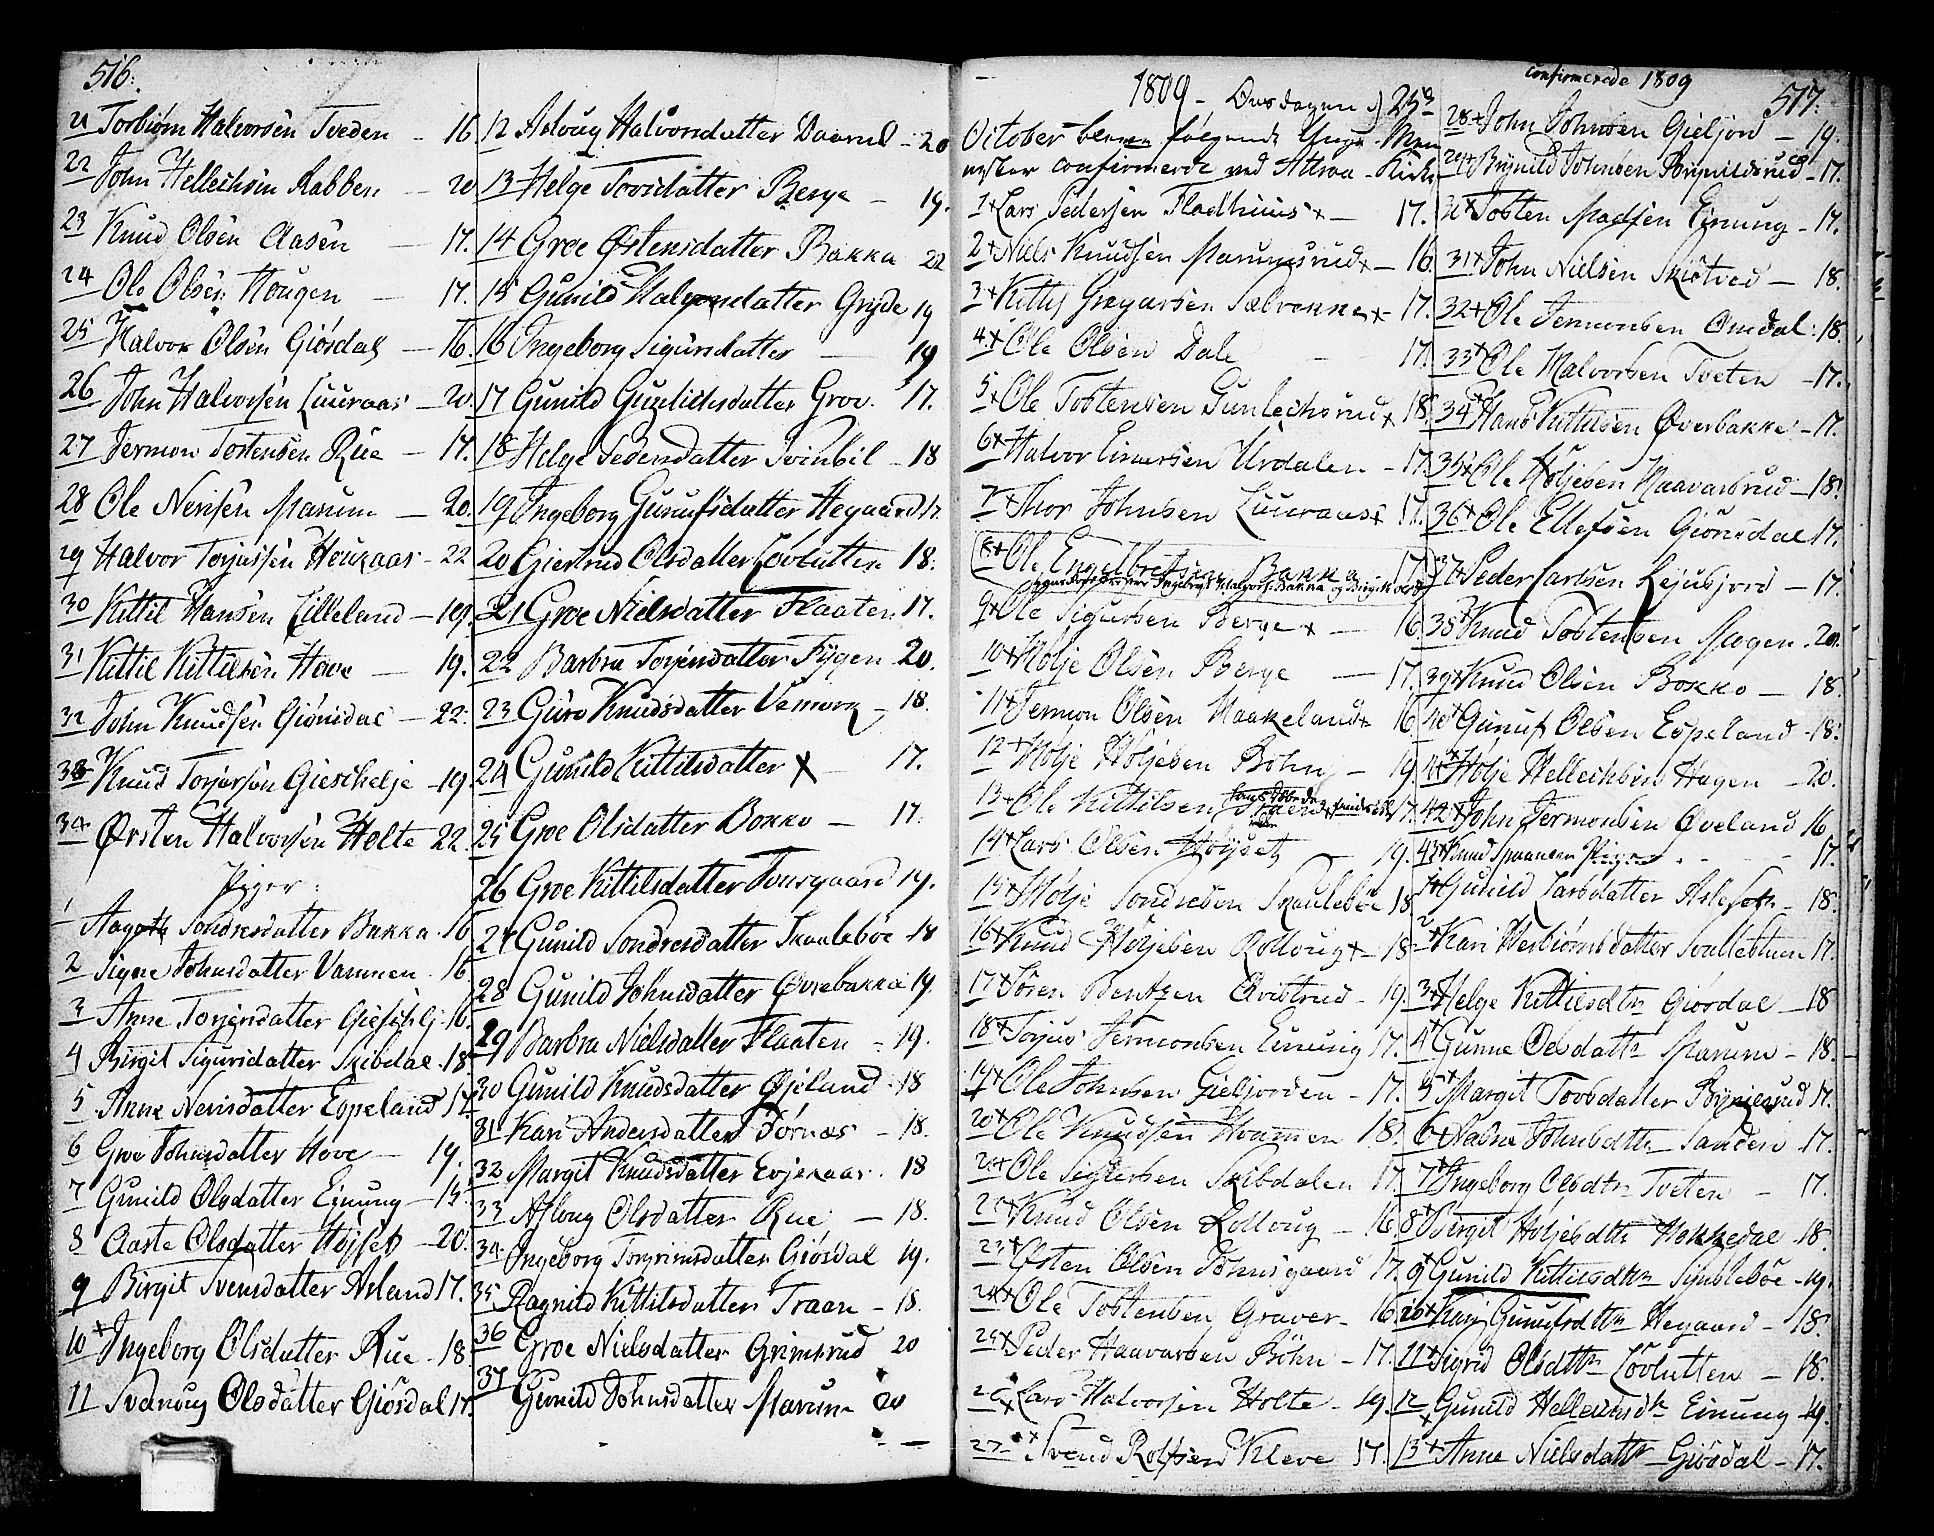 516.
21 Torbiörn Halvorsen Tveden – 16.
22 John Hellechsen Rabben – 20
23 Knud Olsen Aasen – 17.
24 Ole Olsen Hougen – 17.
25 Halvor Olsen Giösdal – 16.
26 John Halvorsen Luuraas – 20.
27 Jermon Tostensen Rue – 17.
28 Ole Nerisen Marum – 20.
29 Halvor Torjussen Houkaas – 22
30 Kittil Hansen Lilleland – 19.
31 Kittil Kittilsen Hove – 19.
32 John Knudsen Giönsdal – 22.
33 Knud Torjersen Gieschelje – 19.
34 Østen Halvorsen Holte 22.
Piger:
1 Aagoth Sondresdatter Bakka – 16
2 Signe Johnsdatter Vammen – 16
3 Anne Torjersdatter – 16.
4 Birgit Sigursdatter Skibdal – 18
5 Anne Nerisdatter Espeland 17.
6 Groe Johnsdatter Hove – 19.
7 Gunild Olsdatter Einung – 15.
8 Aaste Olsdatter Höjset – 20.
9 Birgit Svensdatter Asland 17.
10 Ingeborg Olsdatter Rue – 18
11 Svanoug Olsdatter Giösdal 17.
12 Asloug Halvorsdatter – 20
13 Helge Tovsdatter Berge – 19.
14 Groe Østensdatter Bakka 22
15 Gunild Halvorsdatter Gryde 19
16 Ingeborg Sigursdatter – 19
17 Gunild Gunlichsdatter Groe. 17.
18 Helge Pedersdatter Svinbil – 18
19 Ingeborg Gunufsdatter Hegaard 17.
20 Giertrud Olsdatter Lövlutten 18.
21 Groe Nielsdatter Flaaten 17.
22 Barbra Torjersdatter Fygen – 20.
23 Guro Knudsdatter Vemork – 18.
24 Gunild Kittilsdatter x – 17.
25 Groe Olsdatter Bokko – 17.
26 Groe Kittilsdatter 19.
27 Gunild Sondresdatter Skaaleböe – 18
28 Gunild Johnsdatter Øvrebakka 19.
29 Barbra Nielsdatter Flaaten – 19.
30 Gunild Knudsdatter Øjeland – 18
31 Kari Andersdatter Tørnæs – 18.
32 Margit Knudsdatter – 18
33 Asloug Olsdatter Rue – 18.
34 Ingeborg Torgrimsdatter Giösdal 19.
35 Ragnild Kittilsdatter Traan – 18.
36 Groe Nielsdatter Grimsrud 20
37 Gunild Johnsdatter Marum 20
1809 – Onsdagen d) 25de
October bleven følgende Unge Men
nesker confirmerede ved Attraa Kirke
1 Lars Pedersen Fladhuus – 17.
2 Niels Knudsen Marumsrud – 16.
3 Kittil Gregarsen Sælvekke – 17.
4 Ole Olsen Dale – 17.
5 Ole Tostensen Gunlechsrud 18.
6 Halvor Einersen Urdalen – 17.
7 Thor Johnsen Luuraas 17.
8 Ole Engelbretsen Bakka 17
9 Ole Sigursen Berge – 16
10 Hölje Olsen Berge – 17.
11 Jermon Olsen Haakeland 16
12 Hölje Höljesen Böhn – 19.
13 Ole Kittilsen 17.
14 Lars Olsen Höyset – 19.
15 Hölje Sondresen Skauleböe 18
16 Knud Höljesen Rolloug – 18
17 Sören Bentzen Qvistrud – 19.
18 Torjus Jermonsen Einung 17.
19 Ole Johnsen Gieljorden – 17.
20 Ole Knudsen Hvammen 18.
21 Ole Sigursen Skibdalen 17.
22 Knud Olsen Rolloug – 16
23 Østen Olsen Johnsgaard 17.
24 Ole Tostensen Graver – 16
25 Peder Haavarsen Böhn – 17.
26 Lars Halvorsen Holte – 19.
27 Svend Rolfsen Kleve 17.
confirmerede 1809
517.
28 John Johnsen Gieljord – 19.
29 Brynild Johnsen Brynildsrud – 17.
30 Tosten Madsen Einung – 17.
31 John Nielsen Skiötved – 18.
32 Ole Jermonsen Omdal – 18.
33 Ole Halvorsen Tveten – 17.
34 Hans Kittilsen Øverbakke – 17.
35 Ole Höljesen Haavarsrud – 18.
36 Ole Ellefsen Giönsdal 17.
37 Peder Larssen Rejusjord – 17.
38 Knud Tostensen Mogen – 20.
39 Knud Olsen Bokko – 18.
40 Gunuf Olsen Espeland – 18.
41 Hölje Hellechsen Hagen – 20.
42 John Jermonsen Øveland 16
43 Knud 17.
Piger
1 Gunild Larsdatter – 18.
2 Kari Herbiörnsdatter 17.
3 Helge Kittilsdtr Giösdal – 18
4 Gunne Olsdattr Marum – 18.
5 Margit Tovsdatter 17.
6 Johnsdtr Sanden – 17.
7 Ingeborg Olsdtr Tveten – 17.
8 Birgit Höljesdtr Hokkedal – 18.
9 Gunild Kittilsdtr – 19.
10 Kari Gunufsdtr Hegaard – 18.
11 Sigrid Olsdtr Lövlutten – 18.
12 Gunild Hellechsdtr Einung – 19.
13 Anne Nielsdattr Giösdal – 17.